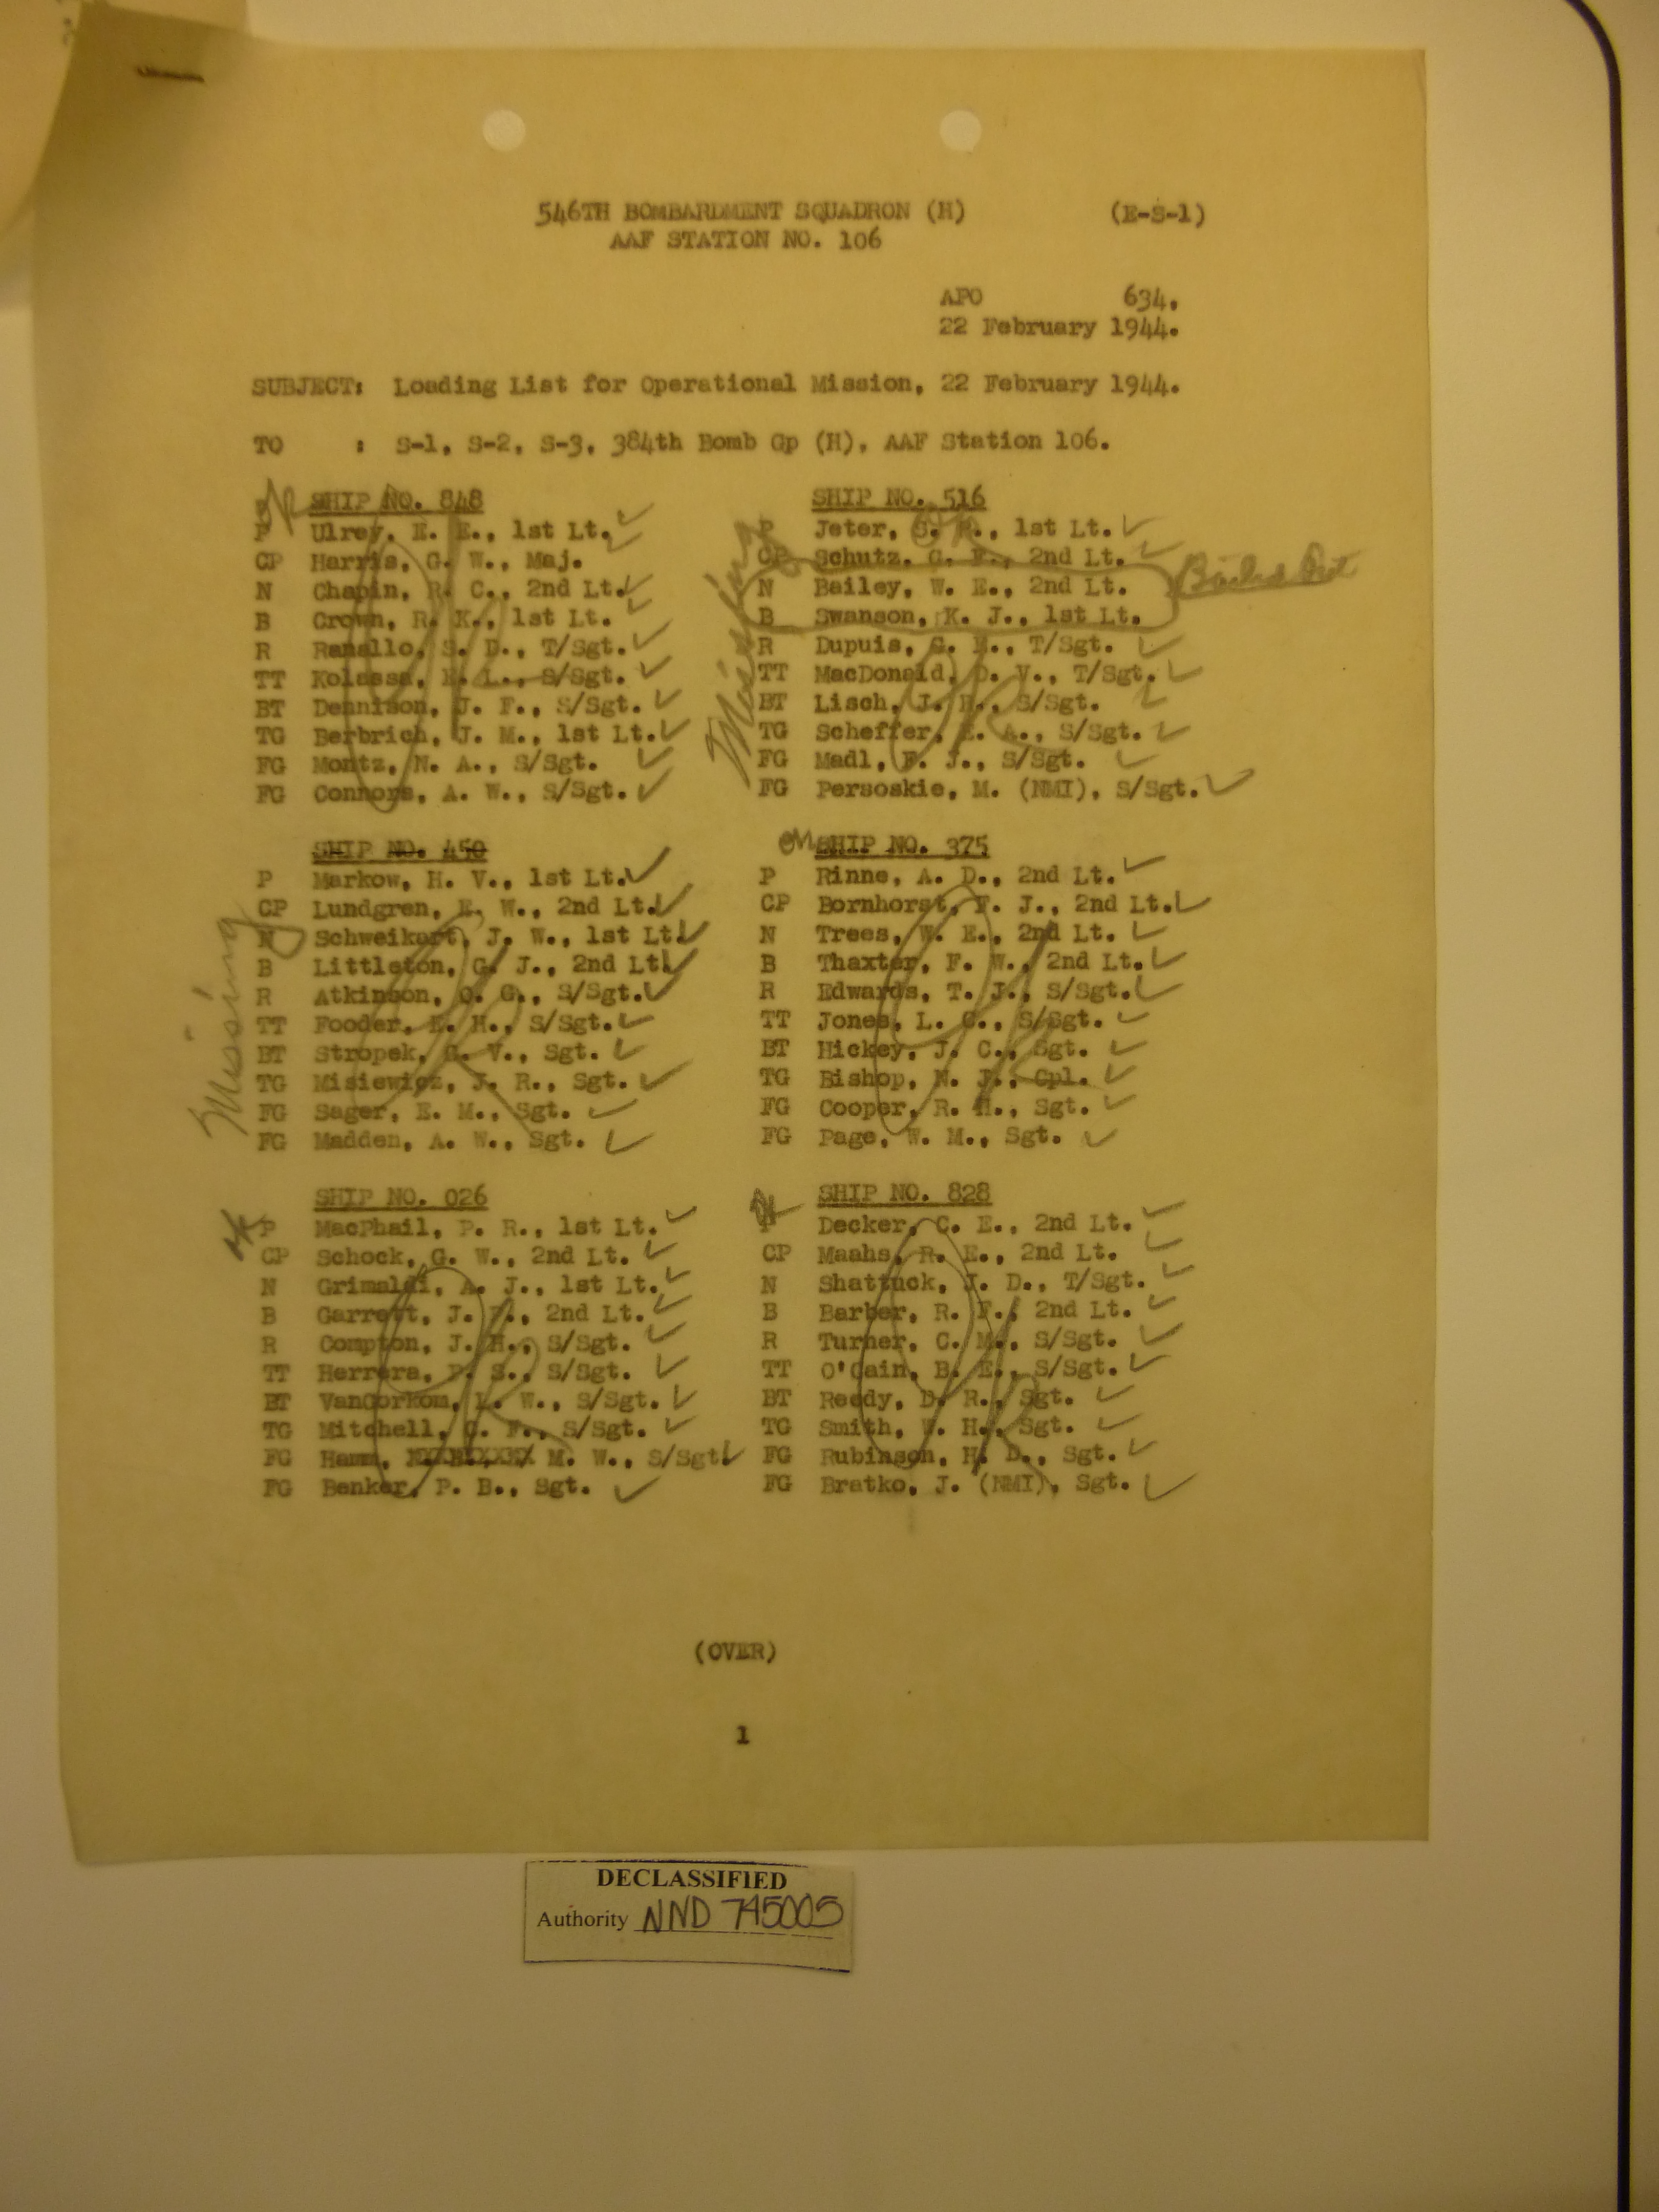 546TH BOMBARDMENT SQUADRON (H) (E-S-1)
AAF STATION NO. 106
APO 634.
22 February 1944.
SUBJECT: Loading List for Operational Mission, 22 February 1944.
TO : S-1, S-2, S-3, 384th Bomb Gp (H), AAF Station 106.
SHIP NO. 848
P Ulrey, E. E., 1st Lt.
CP Harris, G. W., Maj.
N Chapin, R. C., 2nd Lt.
B Crown, R. K., 1st Lt.
R Ranallo, S. D., T/Sgt.
TT Kolassa, E. L., S/Sgt.
BT Dennison, J. F., S/Sgt.
TG Berbrich, J. M., 1st Lt.
FG Montz, N. A., S/Sgt.
FG Connors, A. W., S/Sgt.
SHIP NO. 516
Missing
P Jeter, S. 1st Lt.
CP Schutz, G. F., 2nd Lt.
N Bailey, W. E., 2nd Lt.
B Swanson, K. J., 1st Lt.
Bailed Out
R Dupuis, G. T/Sgt.
TT MacDonald, D. V., T/Sgt.
BT Lisch, J. S/Sgt.
TG Scheffer, E. A., S/Sgt.
FG Madl, F. J., S/Sgt.
FG Persoskie, M. (NMI), S/Sgt.
SHIP NO. 450
Missing
P Markow, H. V., 1st Lt.
CP Lundgren, E. W., 2nd Lt.
N Schweikert, J. W., 1st Lt.
B Littleton, G. J., 2nd Lt.
R Atkinson, O. G., S/Sgt.
TT Fooder, E. H., S/Sgt.
BT Stropek, G. V., Sgt.
TG Misiewicz, J. R., Sgt.
FG Sager, E. M., Sgt.
FG Madden, A. W., Sgt.
SHIP NO. 375
P Rinne, A. D., 2nd Lt.
CP Bornhorst, F. J., 2nd Lt.
N Trees, W. E., 2nd Lt.
B Thaxter, F. W., 2nd Lt.
R Edwards, T. J., S/Sgt.
TT Jones, L. C., S/Sgt.
BT Hickey, J. C., Sgt.
TG Bishop, N. J., Cpl.
FG Cooper, R. H., Sgt.
FG Page, W. M., Sgt.
SHIP NO. 026
P MacPhail, P. R., 1st Lt.
CP Schock, G. W., 2nd Lt.
N Grimaldi, A. J., 1st Lt.
B Garrett, J. 2nd Lt.
R Compton, J. H., S/Sgt.
TT Herrera, P. S., S/Sgt.
BT VanGorkom, L. W., S/Sgt.
TG Mitchell, C. F., S/Sgt.
FG Hamm, M. W., S/Sgt.
FG Benker, P. B., Sgt.
SHIP NO. 828
P Decker, C. E., 2nd Lt.
CP Maahs, R. E., 2nd Lt.
N Shattuck, J. D., T/Sgt.
B Barber, R. F., 2nd Lt.
R Turner, C. M., S/Sgt.
TT O'Cain, B. E., S/Sgt.
BT Reedy, D. R., Sgt.
TG Smith, W. H., Sgt.
FG Rubinson, H. D., Sgt.
FG Bratko, J. (NMI), Sgt.
(OVER)
1
DECLASSIFIED
Authority NND 745005